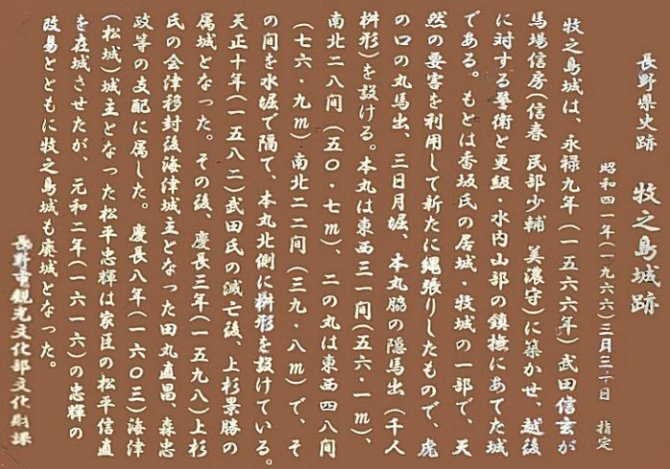 長野県史跡　牧之島城跡
昭和四一年(一九六六)三月三一日　指定
牧之島城は、永禄九年(一五六六年)武田信玄が
馬場信房(信春 民部少輔 美濃守)に築かせ、越後
に対する警衛と更級・水内山部の鎮撫にあてた城
である。もとは香坂氏の居城・牧城の一部で、天
然の要害を利用して新たに縄張りしたもので、虎
の口の丸馬出、三日月堀、本丸脇の隠馬出(千人
桝形)を設ける。本丸は東西三一間(五六・一m)、
南北二八間(五〇・七m)、二の丸は東西四八間
(七六・九m)南北二二間(三九・八m)で、そ
の間を水堀で隔て、本丸北側に桝形を設けている。
天正十年(一五八二)武田氏の滅亡後、上杉景勝の
属城となった。その後、慶長三年(一五九八)上杉
氏の会津移封後海津城主となった田丸直昌、森忠
政等の支配に属した。慶長八年(一六〇三)海津
(松城)城主となった松平忠輝は家臣の松平信直
を在城させたが、元和二年(一六一六)の忠輝の
改易とともに牧之島城も廃城となった。
長野市観光文化部文化財課